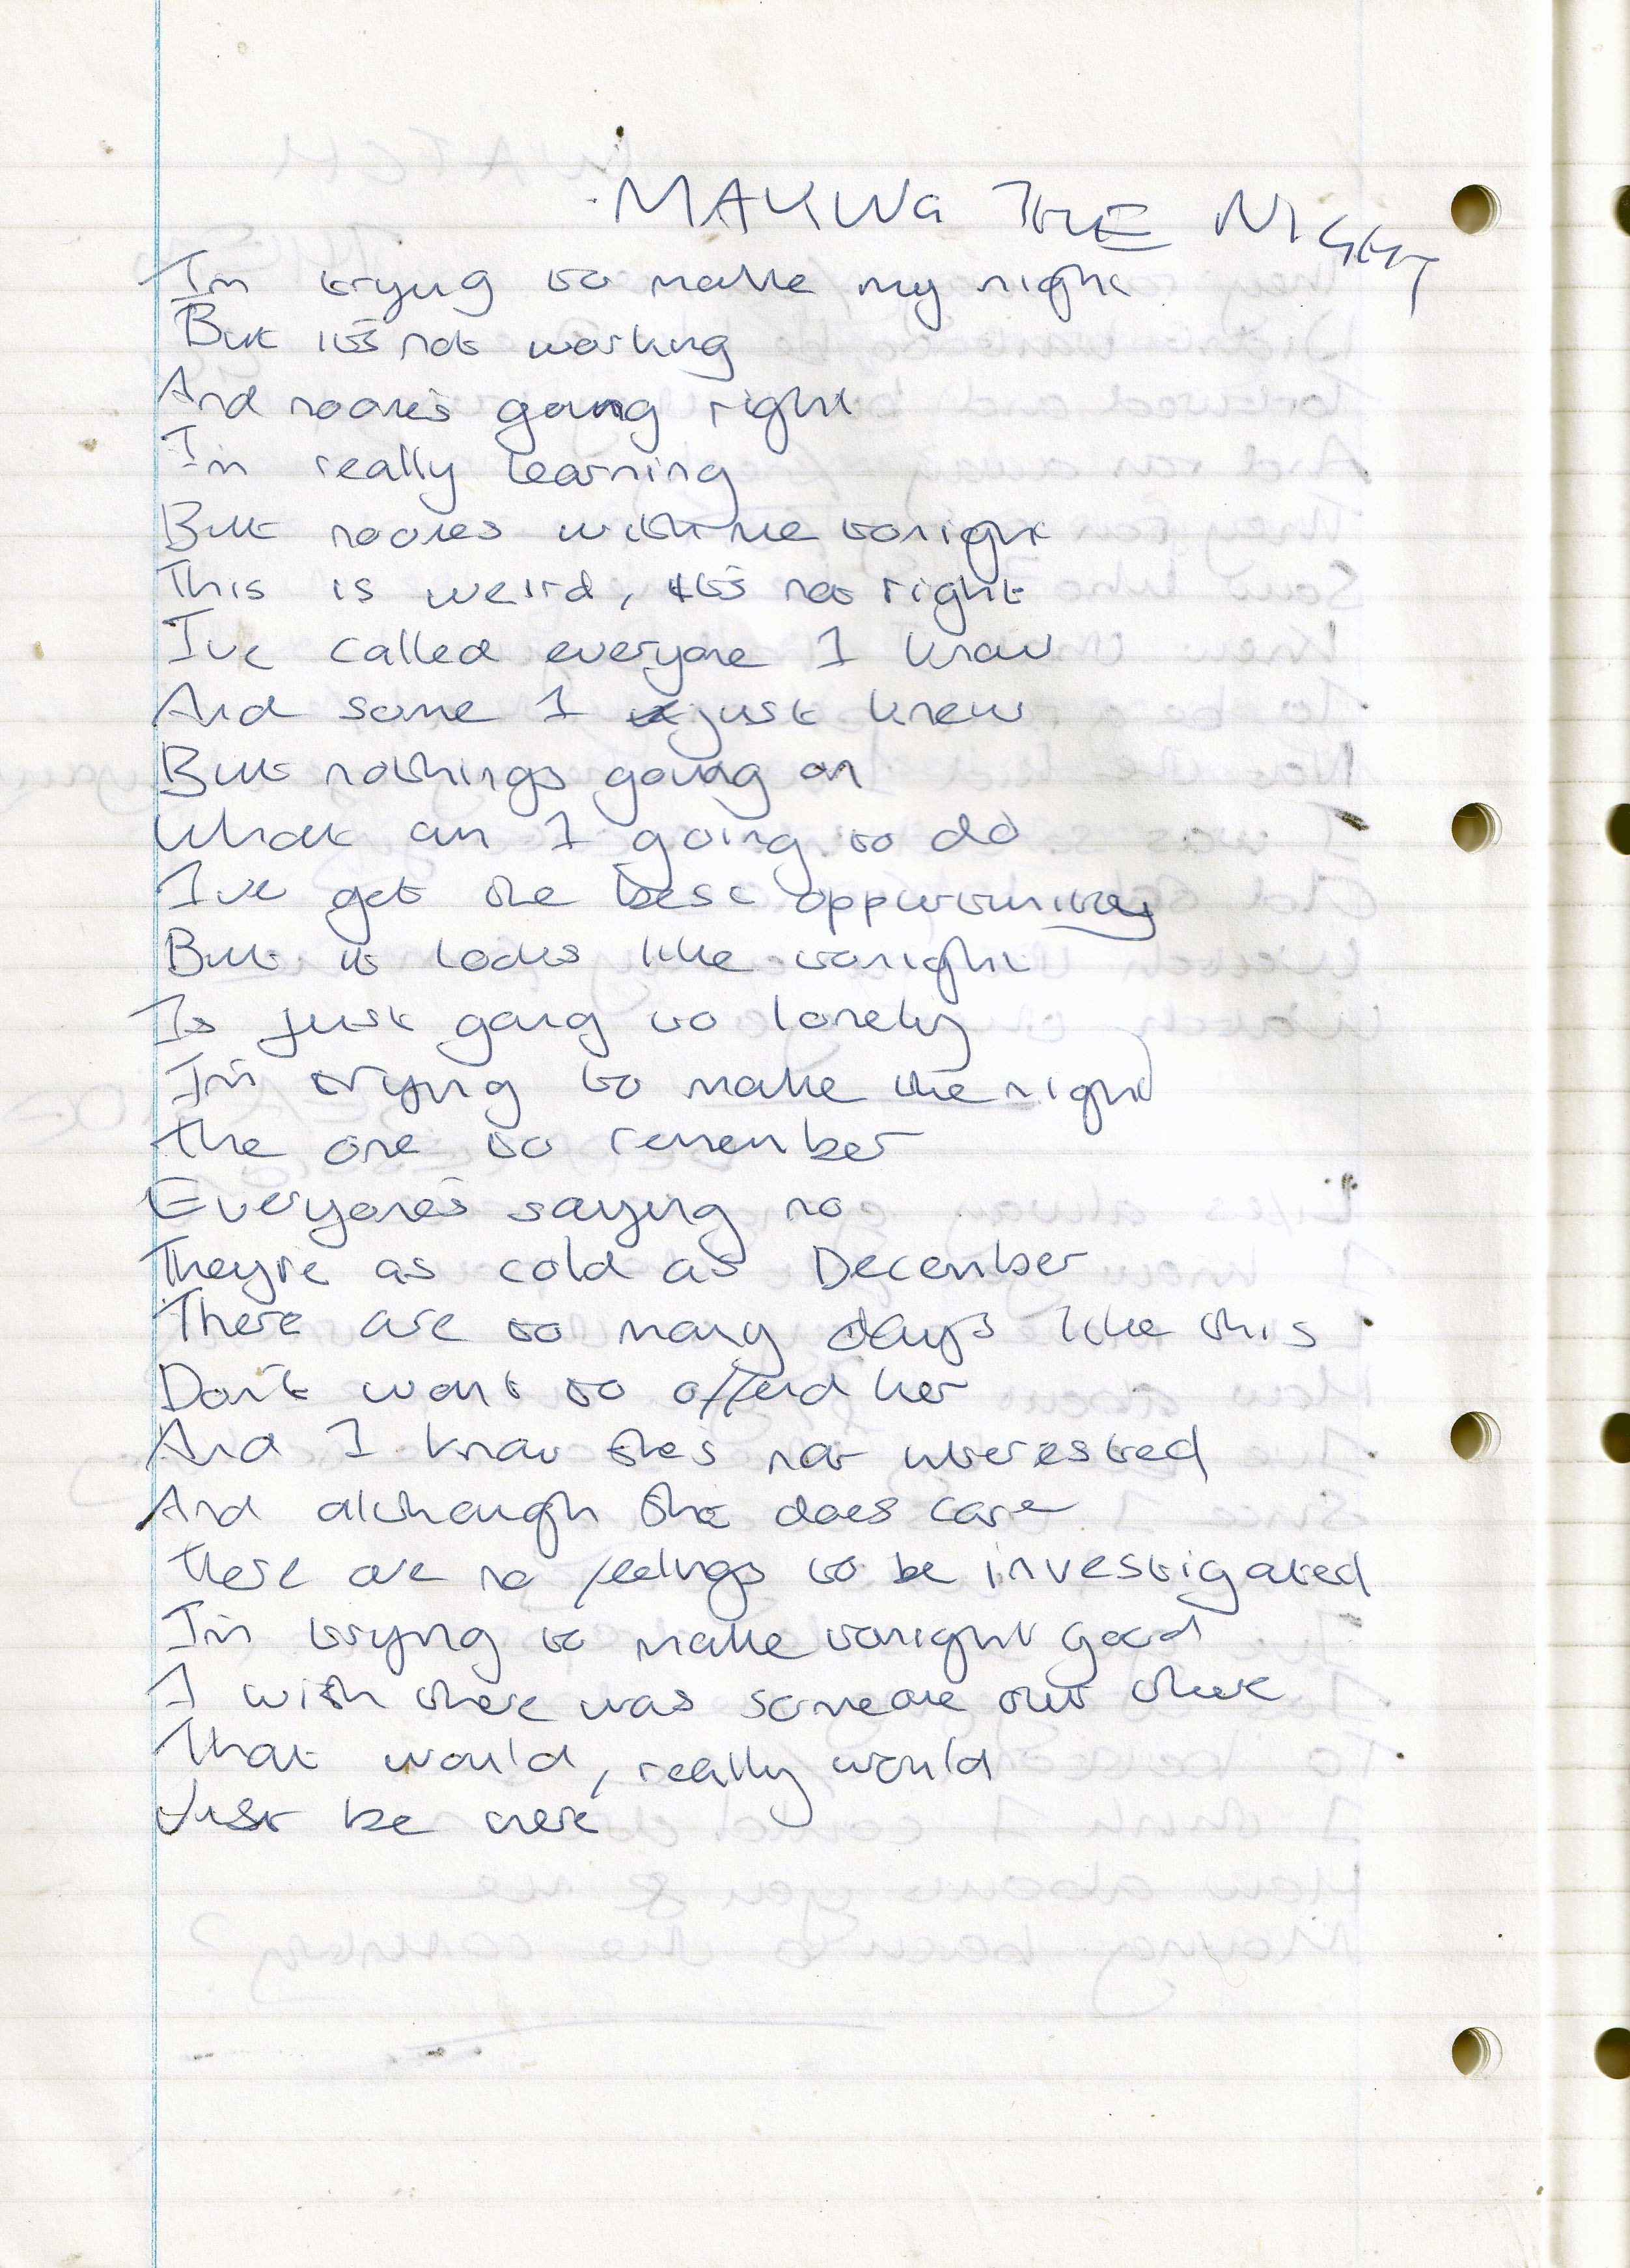 MAKING THE NIGHT
I'm trying to make my night
But it's not working
And noone's going right
I'm really learning
But noones with me tonight
This is weird, it's not right
I've called everyone I know
And some I just knew
But nothings going on
What am I going to do
I've got the best oppurtunity
But it looks like tonight
Is just going to lonely
I'm trying to make the night
The one to remember
Everyone's saying no
They're as cold as December
There are so many days like this
Don't want to offend her
And I know she's not interested
And although she does care
There are no feelings to be investigated
I'm trying to make tonight good
I wish there was someone out there
That would, really would
Just be here